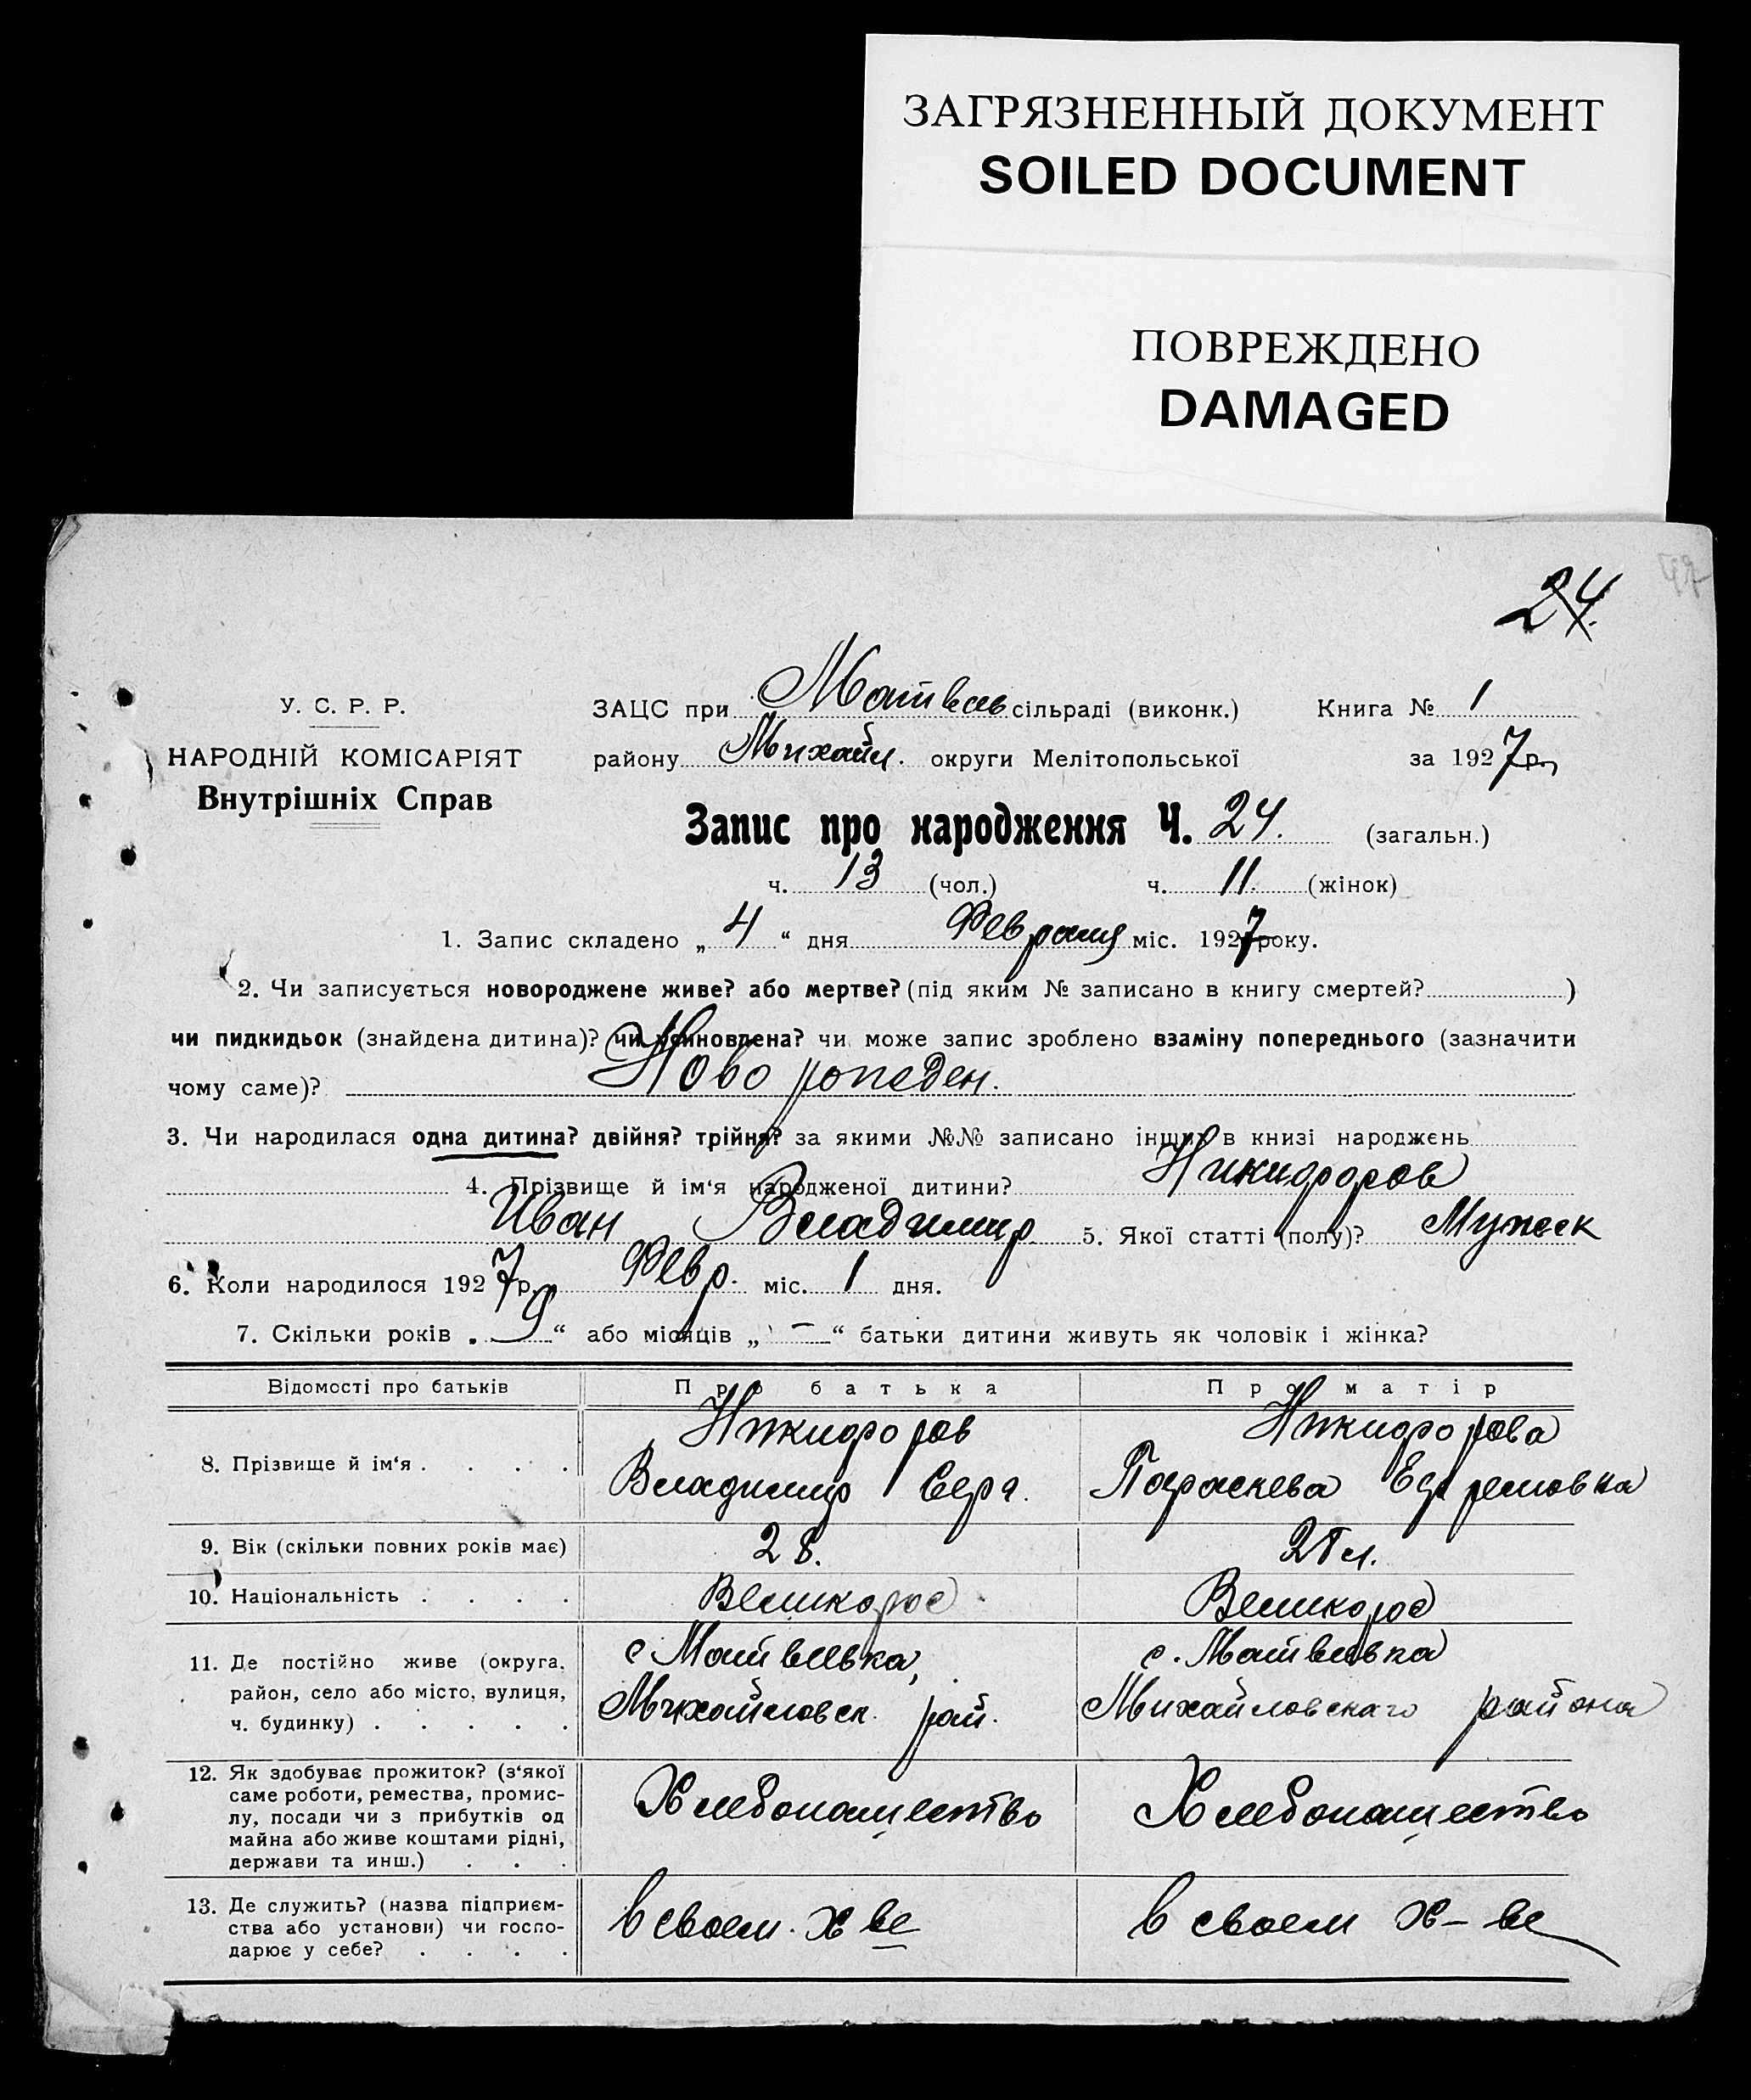 ЗАГРЯЗНЕННЫЙ ДОКУМЕНТ
SOILED DOCUMENT
ПОВРЕЖДЕНО
DAMAGED
24.
У. С. Р. Р.
НАРОДНІЙ КОМІСАРІЯТ
Внутрішніх Справ
ЗАЦС при Матвеев сільраді (виконк.) Книга № 1
району Михайл. округи Мелітопольської за 1927 р.
Запис про народження Ч. 24. (загальн.)
ч. 13 (чол.) ч. 11. (жінок)
1. Запис складено „ 4 “ дня Февраля міс. 1927 року.
2. Чи записується новороджене живе? або мертве? (під яким № записано в книгу смертей? )
чи пидкидьок (знайдена дитина)? чи усиновлена? чи може запис зроблено взаміну попереднього (зазначити
чому саме)? Новорожден.
3. Чи народилася одна дитина? двійня? трійня? за якими №№ записано інших в книзі народжень
4. Прізвище й ім‘я народженої дитини? Никифоров
Иван Владимир 5. Якої статті (полу)? Мужск
6. Коли народилося 1927 р. Февр. міс. 1 дня.
7. Скільки років „ 9 “ або місяців „ — “ батьки дитини живуть як чоловік і жінка?
Відомості про батьків Про батька Про матір
8. Прізвище й ім‘я . . . . Никифоров Никифорова
Владимир Серг. Параскева Ефремовна
9. Вік (скільки повних років має) 28. 28 л.
10. Національність . . . . Великорос Великорос
11. Де постійно живе (округа, с Матвеевка, с. Матвеевка
район, село або місто, вулиця, Михайловск. рай. Михайловскаго района
ч. будинку) . . . . .
12. Як здобуває прожиток? (з‘якої
саме роботи, ремества, промис-
лу, посади чи з прибутків од Хлебопашество Хлебопашество
майна або живе коштами рідні,
держави та инш.) . . .
13. Де служить? (назва підприєм-
ства або установи) чи госпо- в своем х ве в своем х-ве
дарює у себе? . . . .